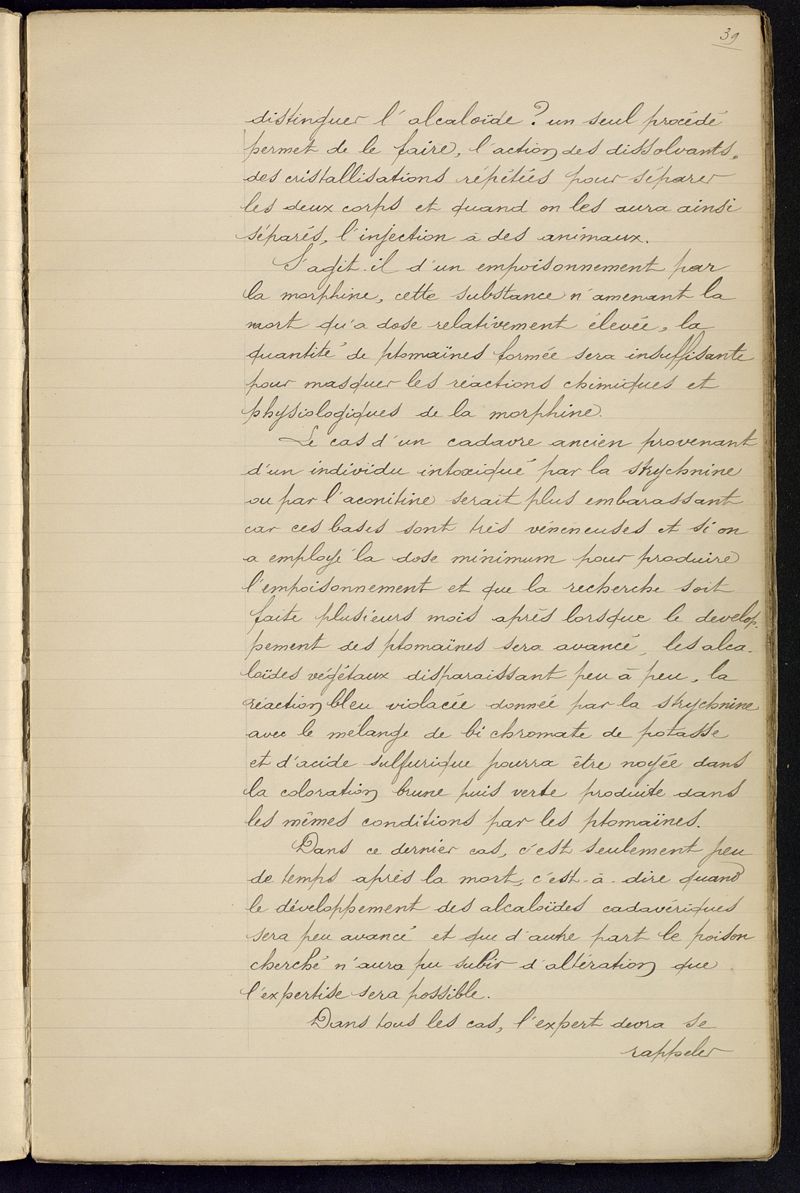 39
distinguer l'alcaloïde ? un seul procédé
permet de le faire, l'action des dissolvants,
des cristallisations répétées pour séparer
les deux corps et quand on les aura ainsi
séparés, l'injection à des animaux.
S'agit-il d'un empoisonnement par
la morphine, cette substance n'amenant la
mort qu'a dose relativement élevée, la
quantité de ptomaïnes formée sera insuffisante
pour masquer les réactions chimiques et
physiologiques de la morphine.
Le cas d'un cadavre ancien provenant
d'un individu intoxiqué par la strychnine
ou par l'aconitine serait plus embarassant
car ces bases sont très vénéneuses et si on
a employé la dose minimum pour produire
l'empoisonnement et que la recherche soit
faite plusieurs mois après lorsque le develop-
pement des ptomaïnes sera avancé, les alca-
loïdes végétaux disparaissant peu à peu, la
réaction bleu violacée donnée par la strychnine
avec le mélange de bichromate de potasse
et d'acide sulfurique pourra être noyée dans
la coloration brune puis verte produite dans
les mêmes conditions par les ptomaïnes.
Dans ce dernier cas, c'est seulement peu
de temps après la mort, c'est-à-dire quand
le développement des alcaloïdes cadavériques
sera peu avancé et que d'autre part le poison
cherché n'aura pu subir d'altération que
l'expertise sera possible.
Dans tous les cas, l'expert devra se
rappeler